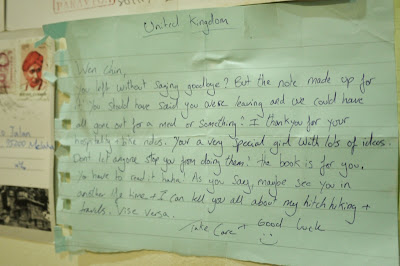 United Kingdom
Wen Chin,
You left without saying goodbye? But the note made up for
it. You should have said you were leaving and we could have
all gone out for a meal or something! I thankyou for your
hospitality + the rides. Your a very special girl with lots of ideas.
Dont let anyone stop you from doing them! the book is for you.
You have to read it haha! As you say, maybe see you in
another life time + I can tell you all about my hitchhiking +
travels. Vise versa.
Take Care + Good Luck
Jalan